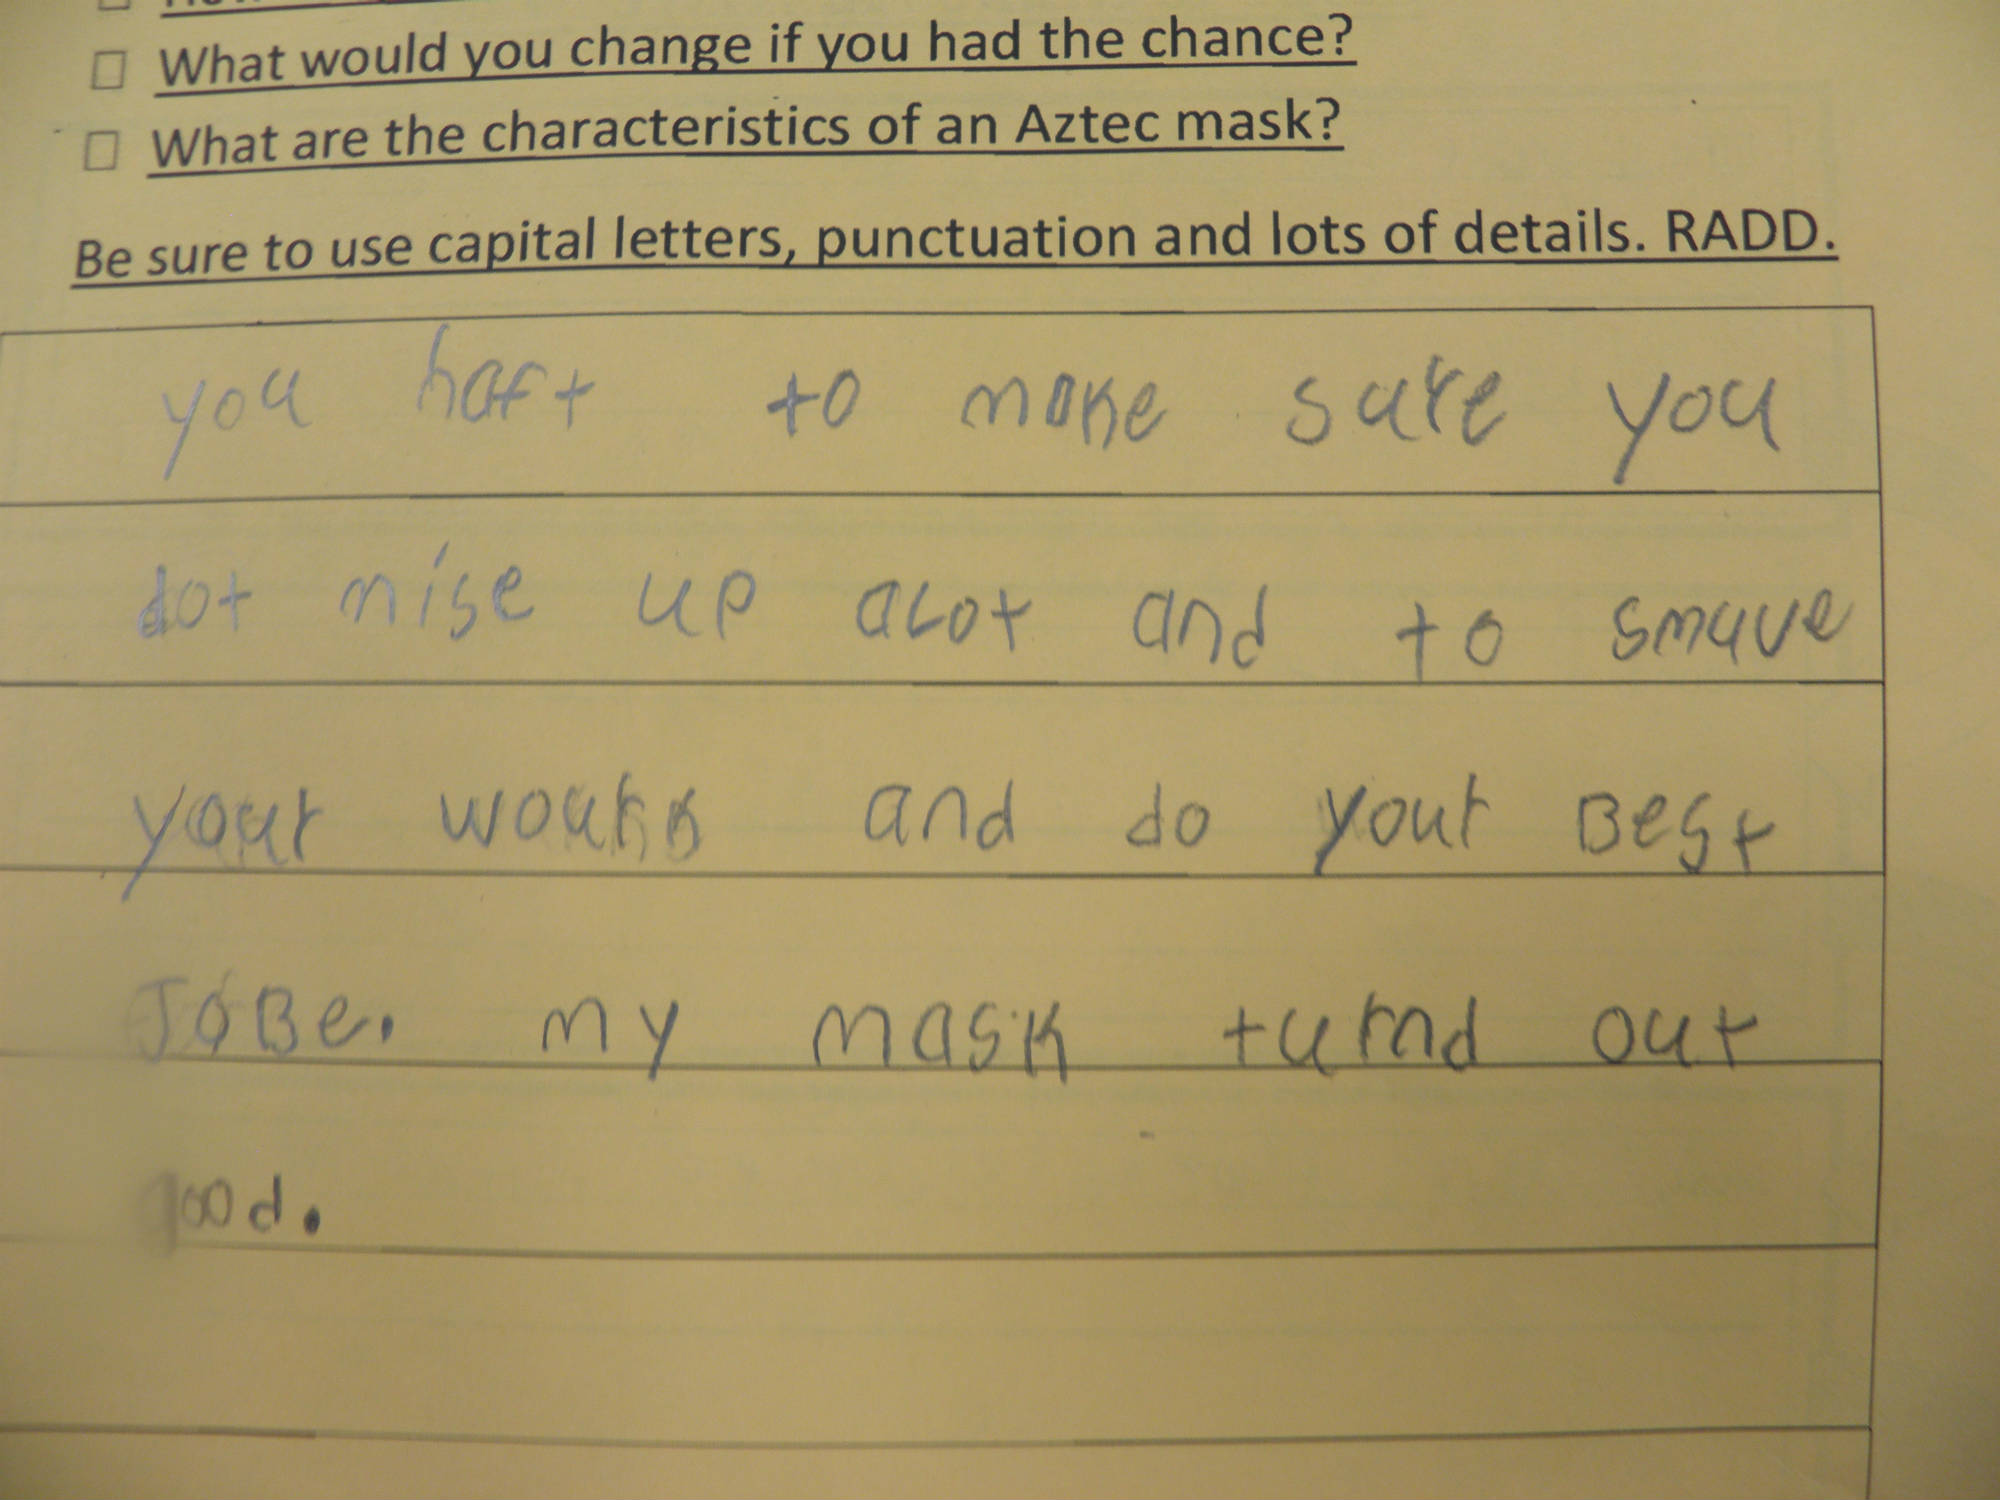 What would you change if you had the chance?
What are the characteristics of an Aztec mask?
Be sure to use capital letters, punctuation and lots of details. RADD.
you haft to make sure you
dot mise up aLot and to smuve
your wourk and do your Best
JoBe. my mask turnd out
good.